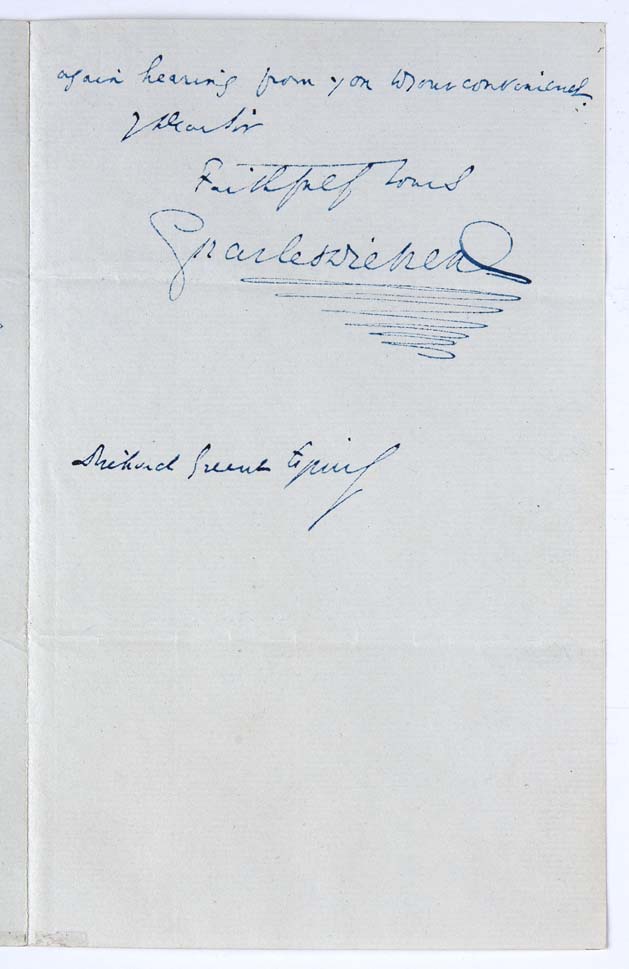 again hearing from you at your convenience.
Dear Sir
Faithfully Yours
Charles Dickens
Richard